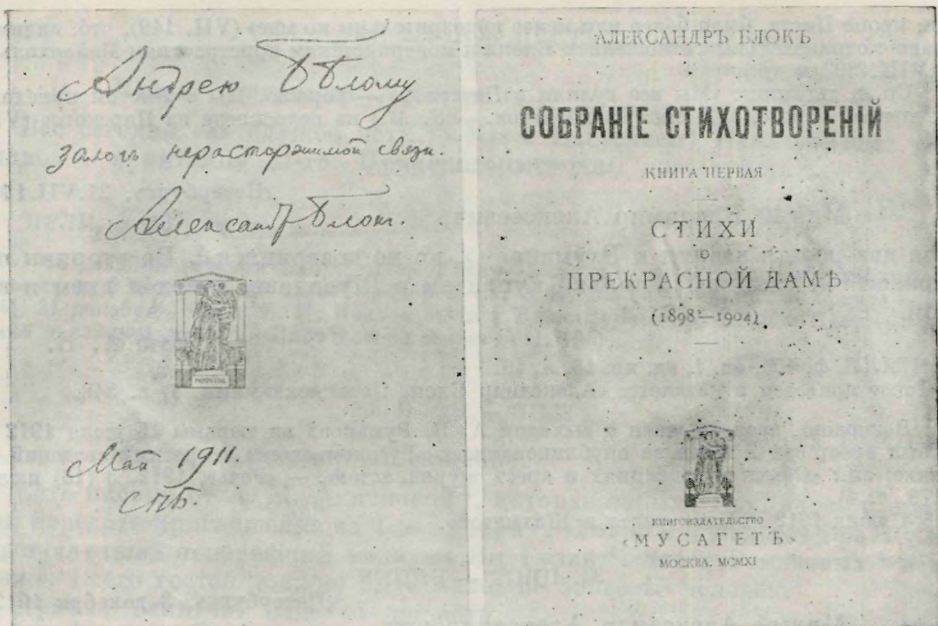 Андрею Бѣлому
залогъ нерасторжимой связи.
Александръ Блокъ.
Май 1911.
СПБ.
АЛЕКСАНДРЪ БЛОКЪ
СОБРАНІЕ СТИХОТВОРЕНІЙ
КНИГА ПЕРВАЯ
СТИХИ
О
ПРЕКРАСНОЙ ДАМѢ
(1898–1904)
КНИГОИЗДАТЕЛЬСТВО
«МУСАГЕТЪ»
МОСКВА. MCMXI